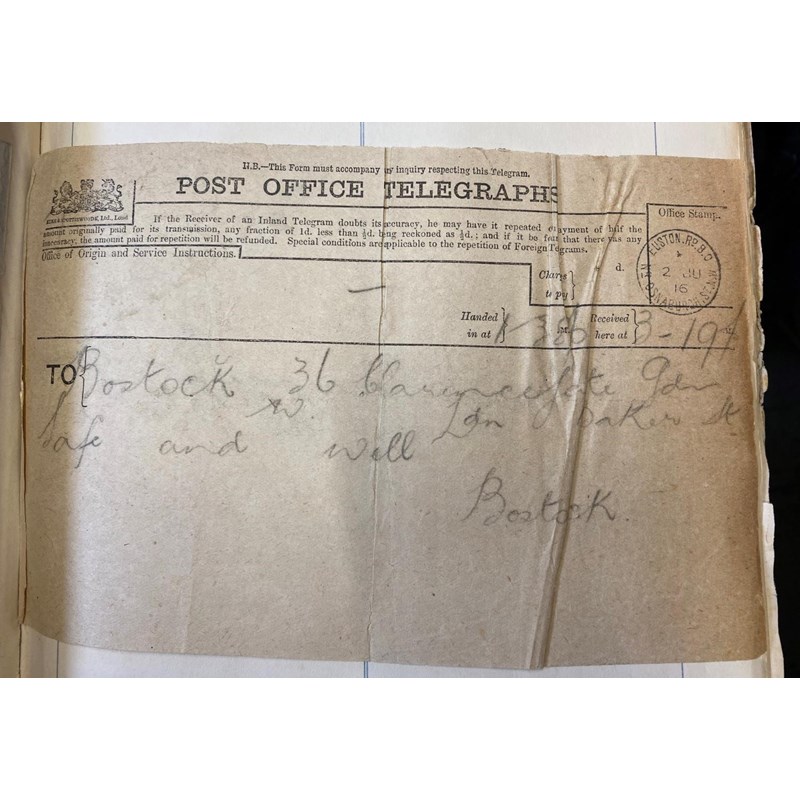 N.B.—This Form must accompany any inquiry respecting this Telegram.
POST OFFICE TELEGRAPHS
If the Receiver of an Inland Telegram doubts its accuracy, he may have it repeated on payment of half the
amount originally paid for its transmission, any fraction of 1d. less than ½d. being reckoned as ½d.; and if it be found that there was any
inaccuracy, the amount paid for repetition will be refunded. Special conditions are applicable to the repetition of Foreign Telegrams.
Office of Origin and Service Instructions.
Office Stamp.
EUSTON. Rd. B.O
2 JU
16
Charges
to pay
d.
Handed
in at
Received
here at
TO
Bostock 36 Clarencegate Gdn
W. Ldn Baker St
Safe and well
Bostock.